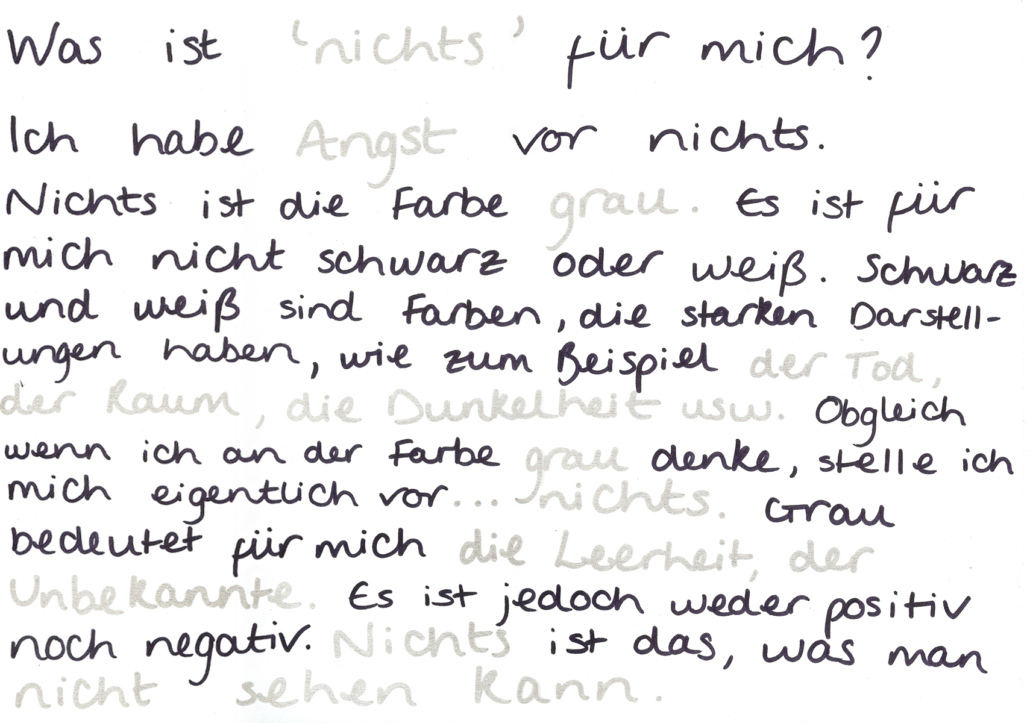 Was ist 'nichts' für mich?
Ich habe Angst vor nichts.
Nichts ist die Farbe grau. Es ist für
mich nicht schwarz oder weiß. Schwarz
und weiß sind Farben, die starken Darstell-
ungen haben, wie zum Beispiel der Tod,
der Raum, die Dunkelheit usw. Obgleich
wenn ich an der Farbe grau denke, stelle ich
mich eigentlich vor... nichts. Grau
bedeutet für mich die Leerheit, der
Unbekannte. Es ist jedoch weder positiv
noch negativ. Nichts ist das, was man
nicht sehen kann.